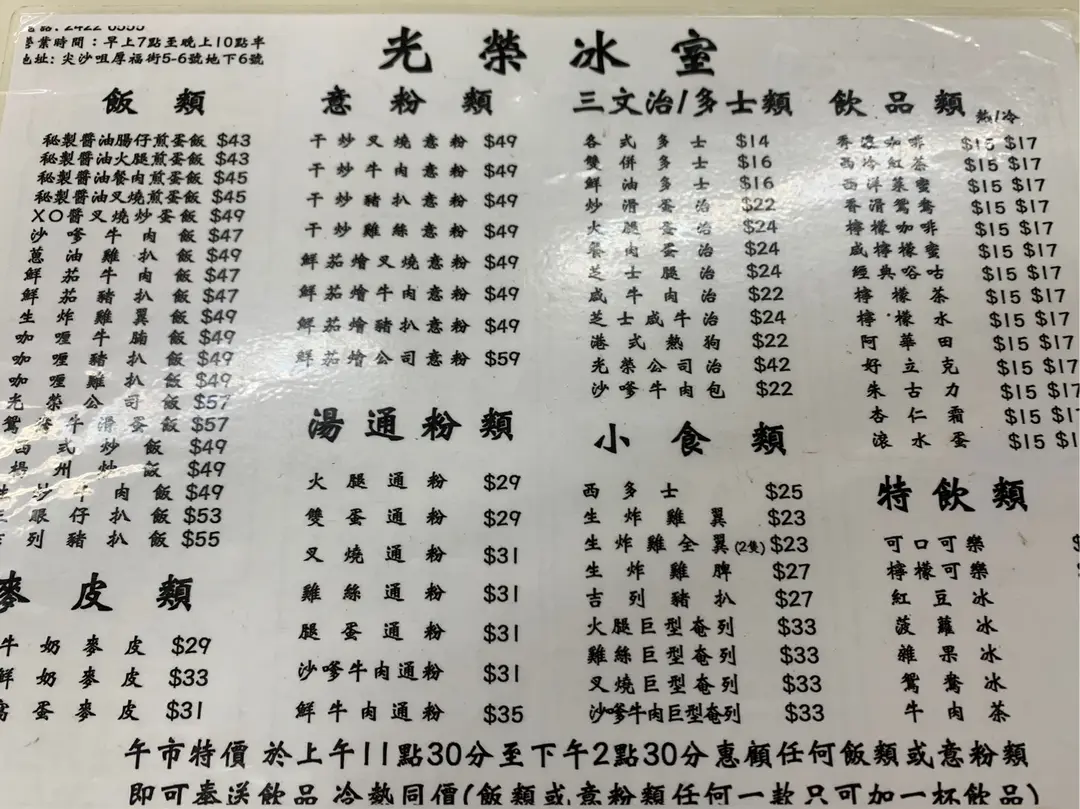 營業時間：早上7點至晚上10點半
地址：尖沙咀厚福街5-6號地下6號
光榮冰室
飯類
秘製醬油腸仔煎蛋飯 $43
秘製醬油火腿煎蛋飯 $43
秘製醬油餐肉煎蛋飯 $45
秘製醬油叉燒煎蛋飯 $45
XO醬叉燒炒蛋飯 $49
沙嗲牛肉飯 $47
蔥油雞扒飯 $49
鮮茄牛肉飯 $47
鮮茄豬扒飯 $47
生炸雞翼飯 $49
咖喱牛腩飯 $49
咖喱豬扒飯 $49
咖喱雞扒飯 $49
光榮公司飯 $57
鴛鴦牛滑蛋飯 $57
西式炒飯 $49
揚州炒飯 $49
生炒牛肉飯 $49
眼仔扒飯 $53
吉列豬扒飯 $55
麥皮類
牛奶麥皮 $29
鮮奶麥皮 $33
窩蛋麥皮 $31
意粉類
干炒叉燒意粉 $49
干炒牛肉意粉 $49
干炒豬扒意粉 $49
干炒雞絲意粉 $49
鮮茄燴叉燒意粉 $49
鮮茄燴牛肉意粉 $49
鮮茄燴豬扒意粉 $49
鮮茄燴公司意粉 $59
湯通粉類
火腿通粉 $29
雙蛋通粉 $29
叉燒通粉 $31
雞絲通粉 $31
腿蛋通粉 $31
沙嗲牛肉通粉 $31
鮮牛肉通粉 $35
三文治/多士類
各式多士 $14
雙併多士 $16
鮮油多士 $16
炒滑蛋治 $22
火腿蛋治 $24
餐肉蛋治 $24
芝士腿治 $24
咸牛肉治 $22
芝士咸牛治 $24
港式熱狗 $22
光榮公司治 $42
沙嗲牛肉包 $22
小食類
西多士 $25
生炸雞翼 $23
生炸雞全翼(2隻) $23
生炸雞脾 $27
吉列豬扒 $27
火腿巨型奄列 $33
雞絲巨型奄列 $33
叉燒巨型奄列 $33
沙嗲牛肉巨型奄列 $33
飲品類 熱/冷
香濃咖啡 $15 $17
西冷紅茶 $15 $17
西洋菜蜜 $15 $17
香滑鴛鴦 $15 $17
檸檬咖啡 $15 $17
咸檸檬蜜 $15 $17
經典唂咕 $15 $17
檸檬茶 $15 $17
檸檬水 $15 $17
阿華田 $15 $17
好立克 $15 $17
朱古力 $15 $17
杏仁霜 $15 $17
滾水蛋 $15
特飲類
可口可樂
檸檬可樂
紅豆冰
菠蘿冰
雜果冰
鴛鴦冰
牛肉茶
午市特價 於上午11點30分至下午2點30分惠顧任何飯類或意粉類
即可奉送飲品 冷熱同價(飯類或意粉類任何一款只可加一杯飲品)